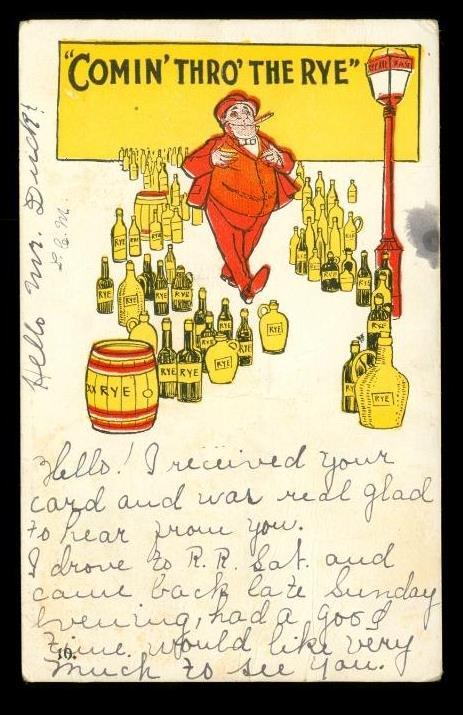 "COMIN' THRO' THE RYE"
Hello Mr. Duck!
RYE
RYE
RYE
RYE
RYE
RYE
RYE
RYE
RYE
RYE
RYE
RYE
XX RYE
RYE
RYE
Hello! I received your
card and was real glad
to hear from you.
I drove to R.R. Sat. and
came back late Sunday
evening, had a good
time. would like very
much to see you.
10.